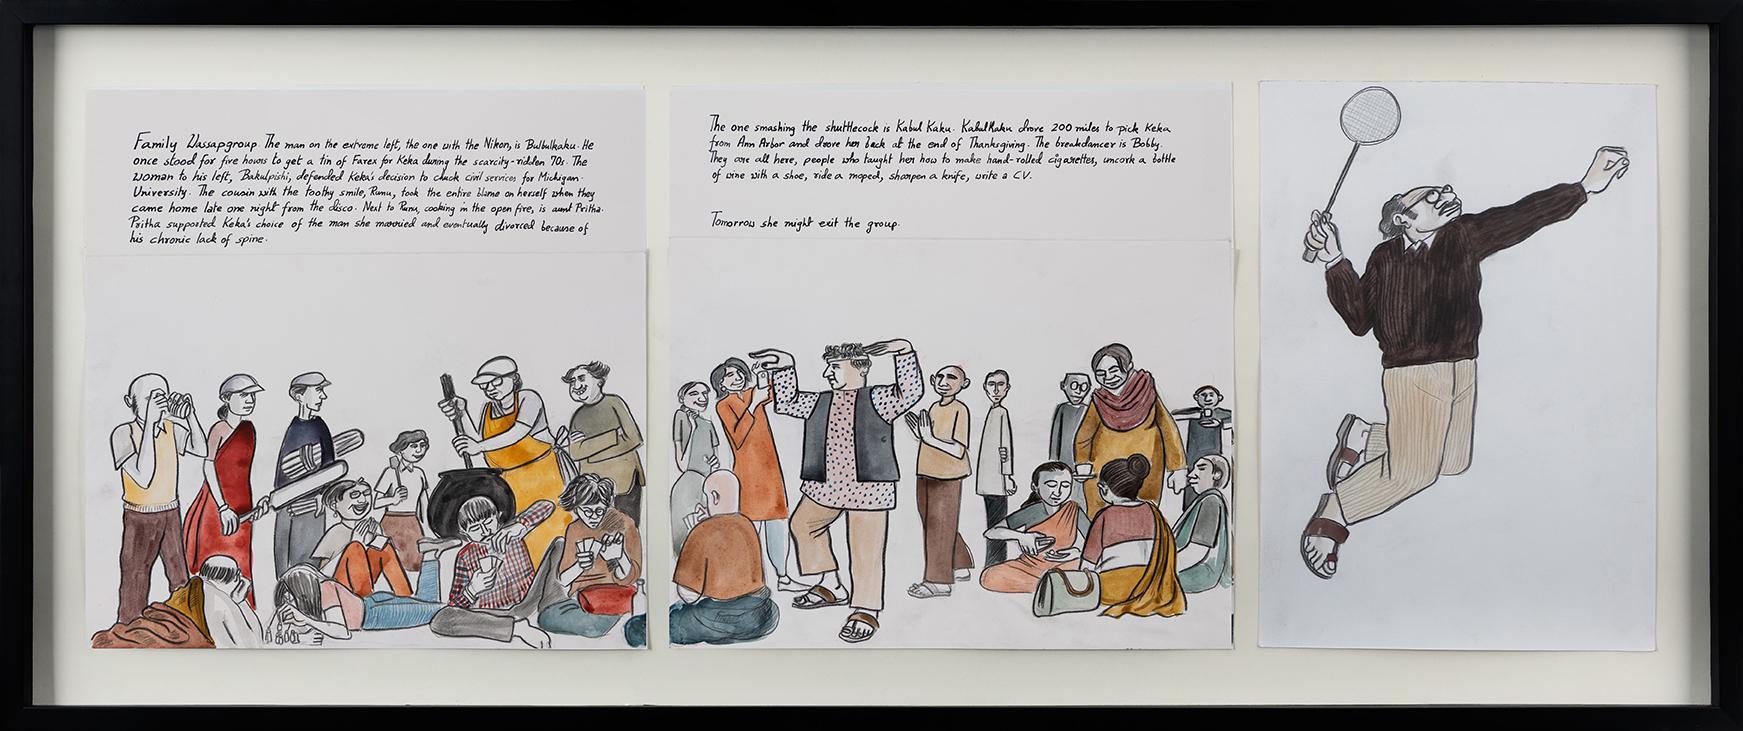 Family Wassapgroup. The man on the extreme left, the one with the Nikon, is Bulbulkaku. He
once stood for five hours to get a tin of Farex for Keka during the scarcity-ridden 70s. The
woman to his left, Bakulpishi, defended Keka's decision to chuck civil services for Michigan
University. The cousin with the toothy smile, Runu, took the entire blame on herself when they
came home late one night from the disco. Next to Runu, cooking in the open fire, is aunt Pritha.
Pritha supported Keka's choice of the man she married and eventually divorced because of
his chronic lack of spine.
The one smashing the shuttlecock is Kabul Kaku. Kabul Kaku drove 200 miles to pick Keka
from Ann Arbor and drove her back at the end of Thanksgiving. The breakdancer is Bobby.
They are all here, people who taught her how to make hand-rolled cigarettes, uncork a bottle
of wine with a shoe, ride a moped, sharpen a knife, write a CV.
Tomorrow she might exit the group.